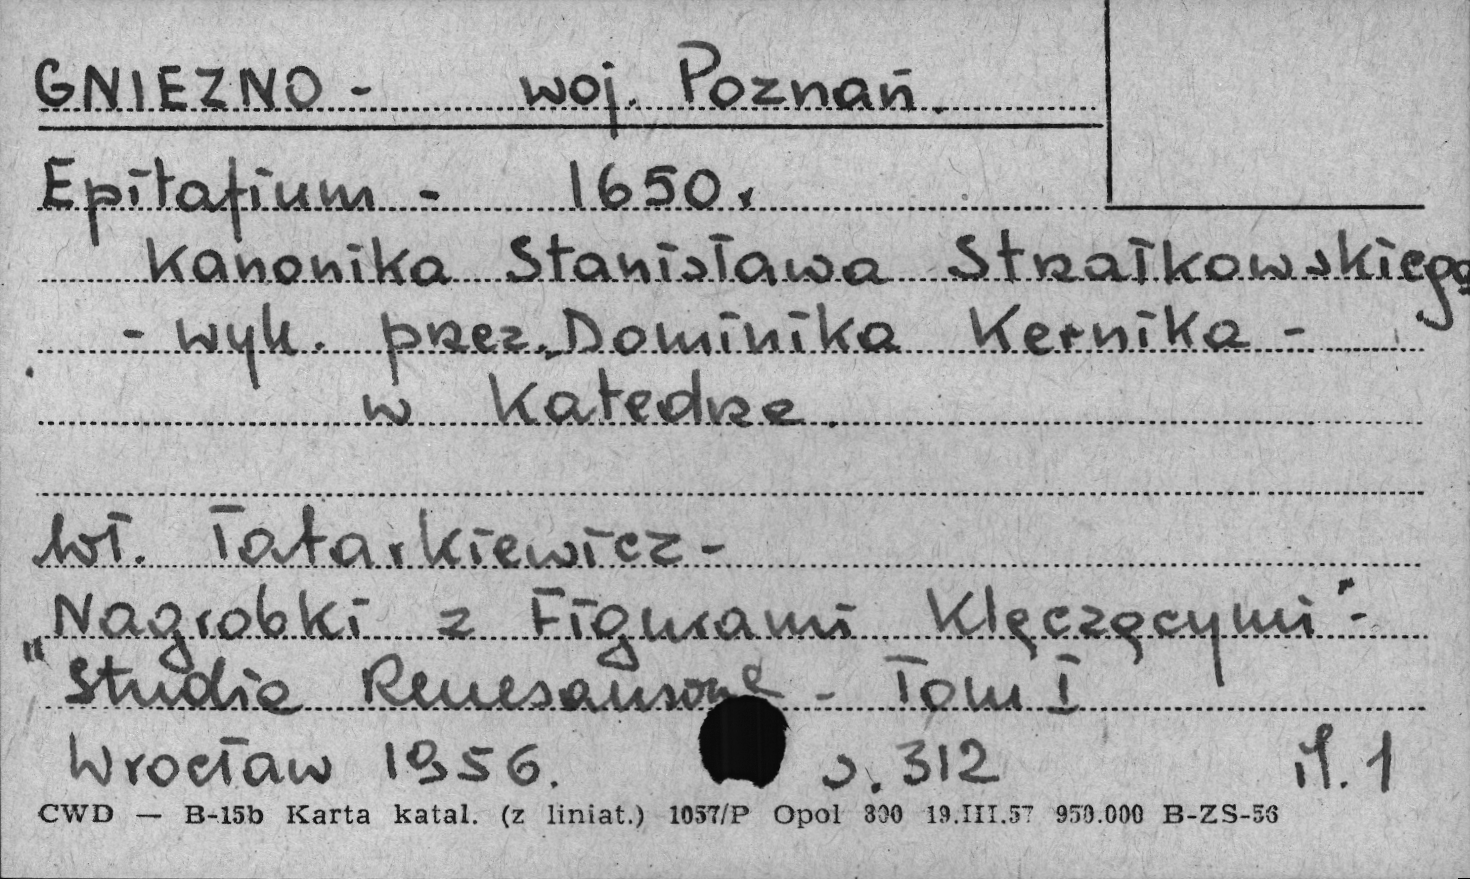 GNIEZNO - woj. Poznań.
Epitafium - 1650r
Kanonika Stanisława Strzałkowskiego
- wyk. przez Dominika Kernika -
w Katedrze.
Wł. Tatarkiewicz -
Nagrobki z Figurami Klęczącymi" -
"Studia Renesansowe - Tom I
Wrocław 1956. s. 312 il. 1
CWD — B-15b Karta katal. (z liniat.) 1057/P Opol 800 19.III.57 950.000 B-ZS-56